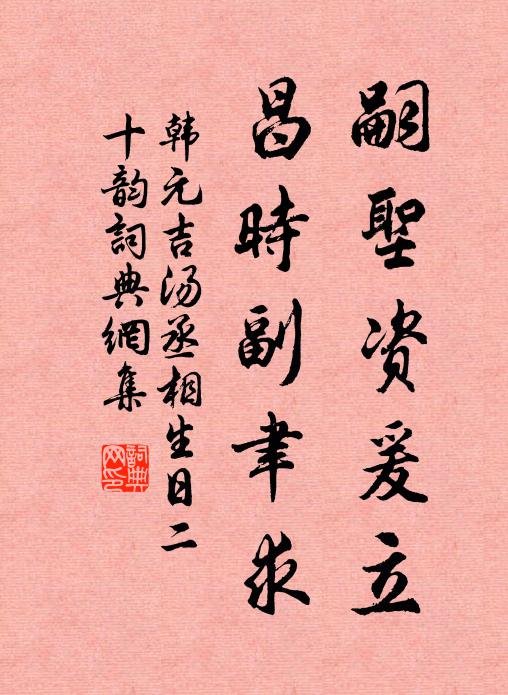 嗣聖资爰立
昌時副聿求
韩元吉汤丞相生日二
十韵詞典網集
詞典
网印